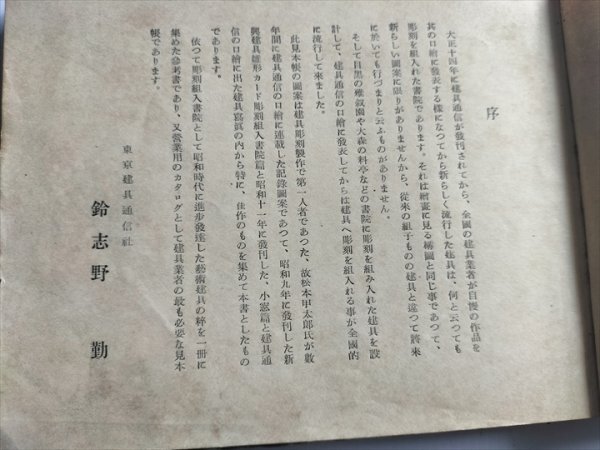 序
大正十四年に建具通信が發刊されてから、全國の建具業者が自慢の作品を
其の口繪に發表する樣になつてから新らしく流行した建具は、何と云つても
彫刻を組入れた書院であります。それは繪畫に見る極圖と同じ事であつて、
新らしい圖案に限りがありませんから、從來の組子ものの建具と違つて將來
に於いても行づまりと云ふものがありません。
そして目黒の雅叙園や大森の料亭などの書院に彫刻を組み入れた建具を設
計して、建具通信の口繪に發表してからは建具へ彫刻を組入れる事が全國的
に流行して來ました。
此見本帳の圖案は建具彫刻製作で第一人者であつた、故松本甲太郎氏が數
年間に建具通信の口繪に連載した記錄圖案であつて、昭和九年に發刊した新
興建具雛形カード彫刻組入書院篇と昭和十一年に發刊した、小窓篇と建具通
信の口繪に出た建具寫眞の内から特に、佳作のものを集めて本書としたもの
であります。
依つて彫刻組入書院として昭和時代に進步發達した藝術建具の粹を一冊に
集めた參考書であり、又營業用のカタログとして建具業者の最も必要な見本
帳であります。
東京建具通信社
鈴志野 勤